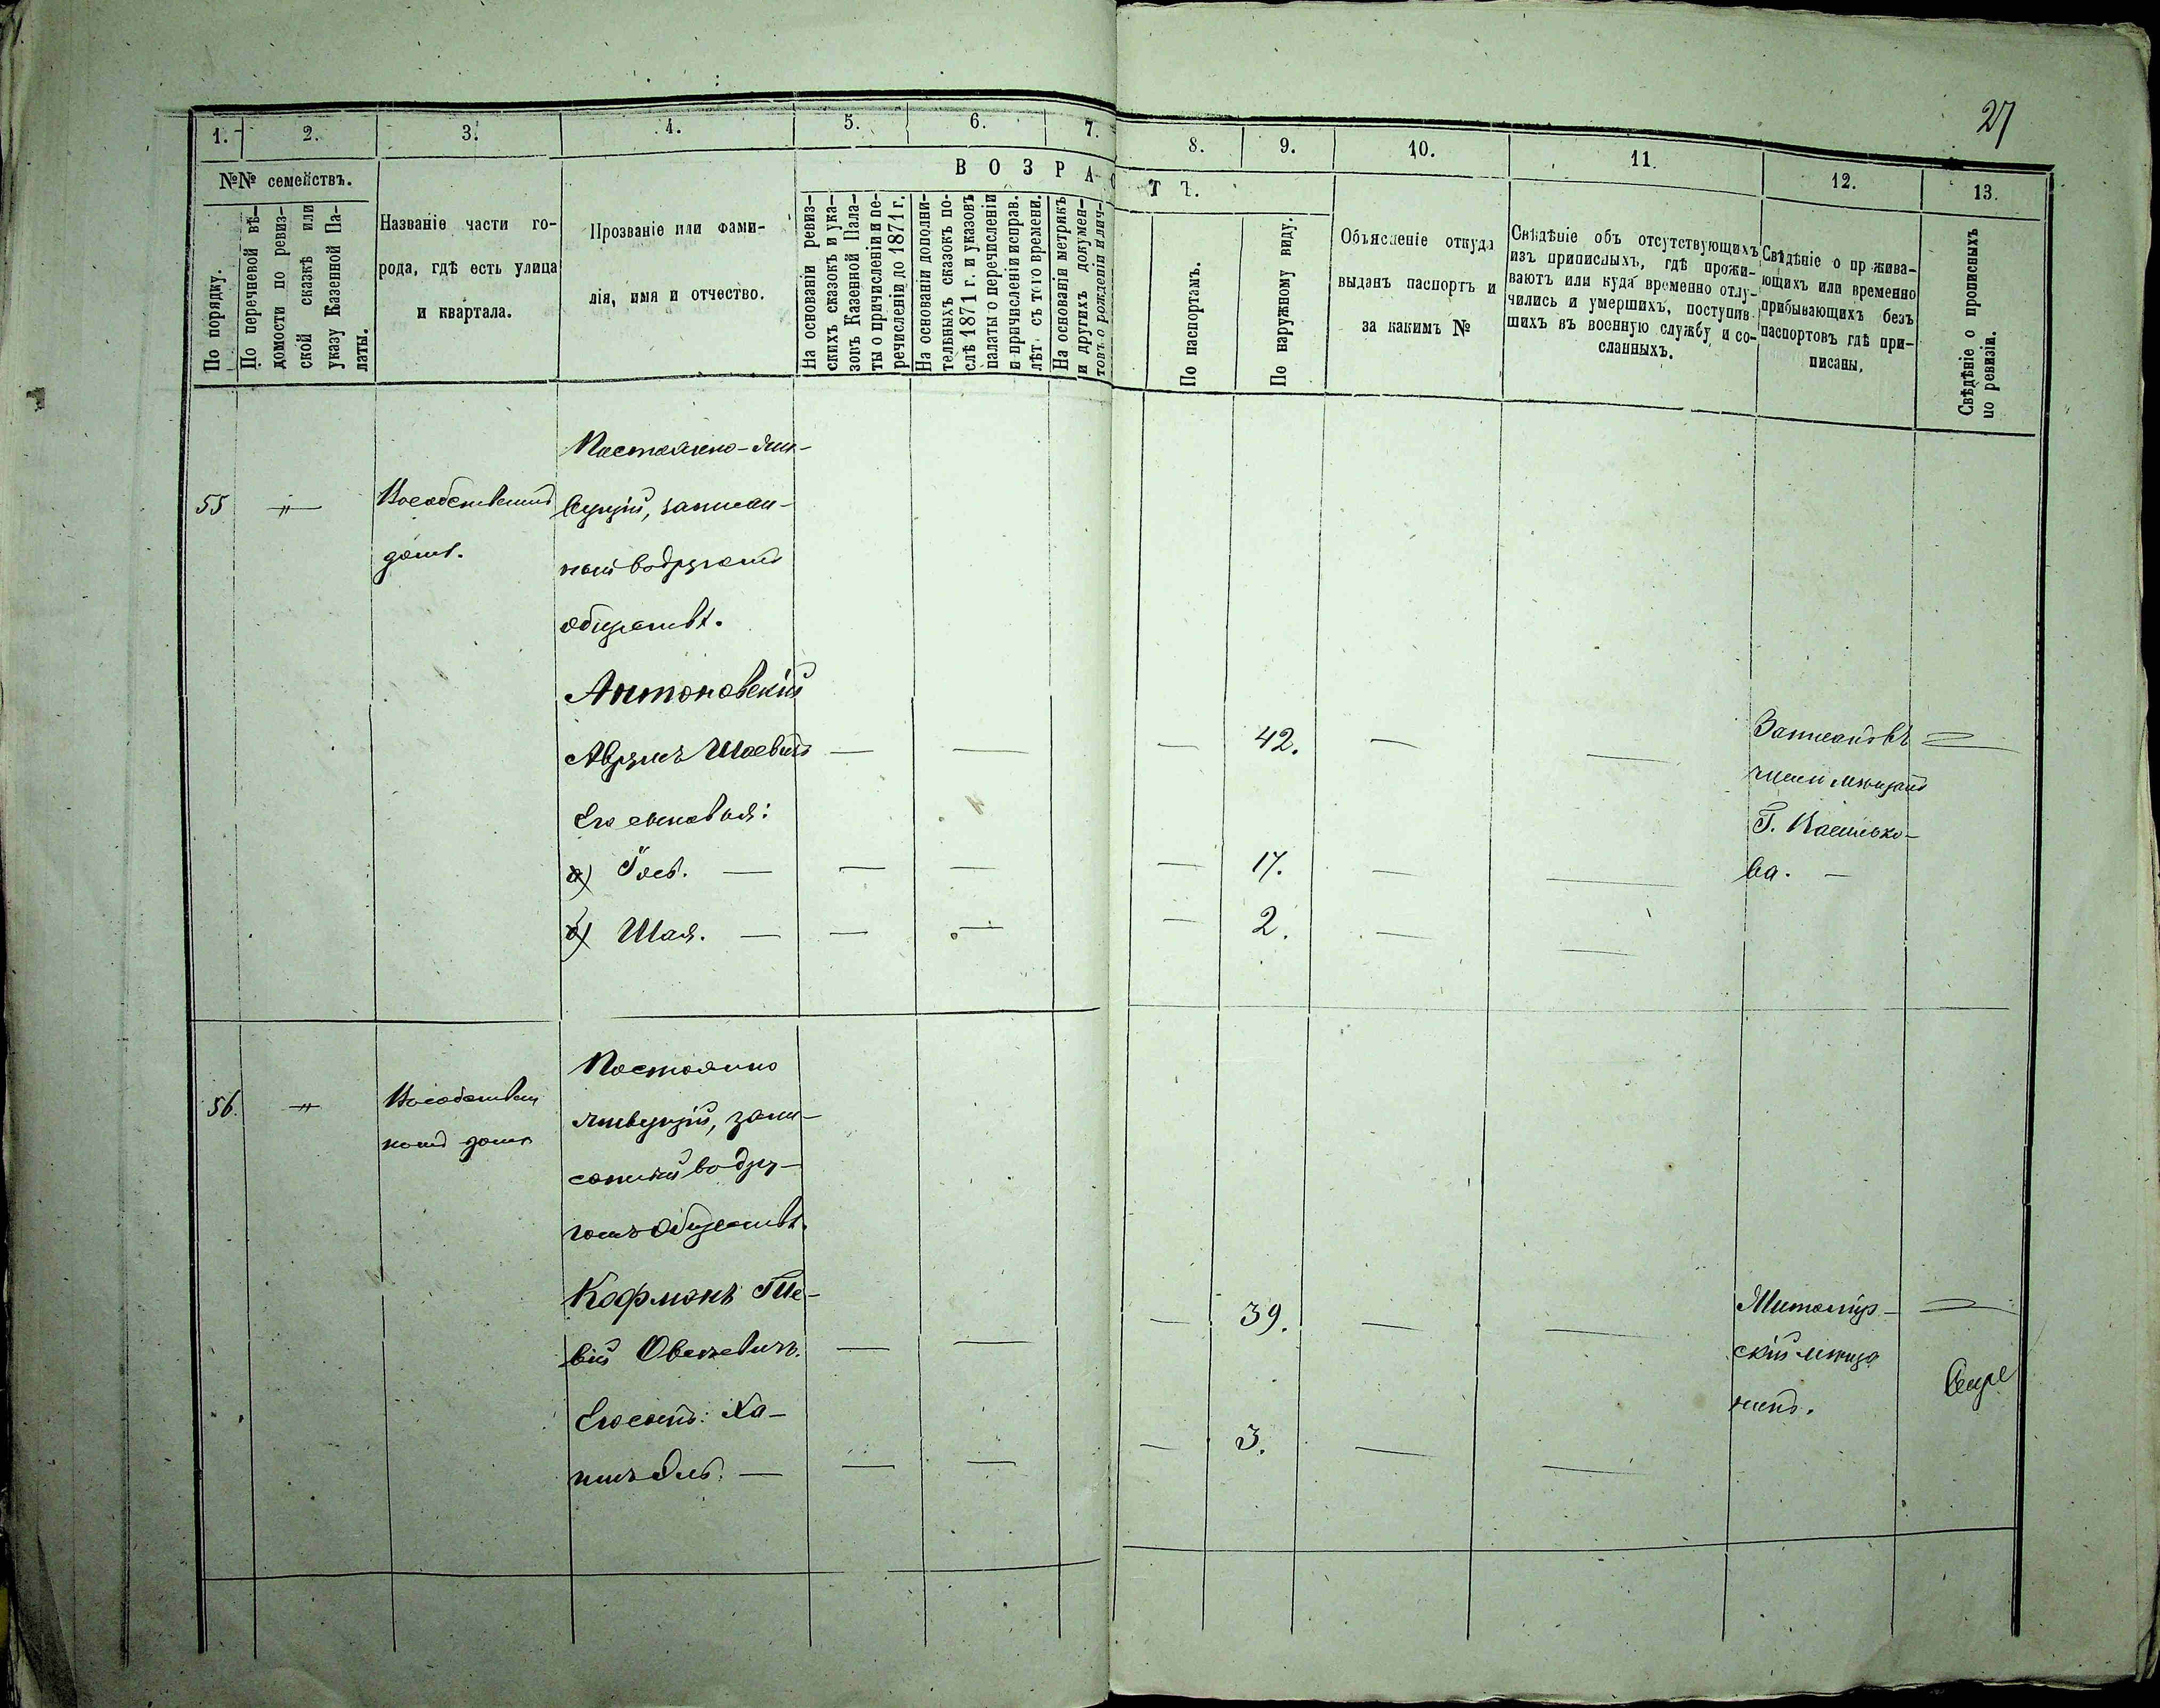 27
1. 2. 3. 4. 5. 6. 7. 8. 9. 10. 11. 12. 13.
№№ семействъ.
В О З Р А С Т Ъ.
По порядку.
По перечневой вѣ-
домости по ревиз-
ской сказкѣ или
указу Казенной Па-
латы.
Названіе части го-
рода, гдѣ есть улица
и квартала.
Прозваніе или фами-
лія, имя и отчество.
На основаніи ревиз-
скихъ сказокъ и ука-
зовъ Казенной Пала-
ты о причисленіи и пе-
речисленіи до 1871 г.
На основаніи дополни-
тельныхъ сказокъ по-
слѣ 1871 г. и указовъ
палаты о перечисленіи
и причисленіи исправ.
лѣт. съ того времени.
На основаніи метрикъ
и другихъ докумен-
товъ о рожденіи и лич-
По паспортамъ.
По наружному виду.
Объясненіе откуда
выданъ паспортъ и
за какимъ №
Свѣдѣніе объ отсутствующихъ
изъ приписныхъ, гдѣ прожи-
ваютъ или куда временно отлу-
чились и умершихъ, поступив-
шихъ въ военную службу и со-
сланныхъ.
Свѣдѣніе о прожива-
ющихъ или временно
прибывающихъ безъ
паспортовъ гдѣ при-
писаны.
Свѣдѣніе о прописныхъ
по ревизіи.
Постоянно-жи-
55 — " — Вособственомъ вущій, записан-
домѣ. ный водругомъ
обществѣ.
Антоновскій
Аврумъ Шаевичъ — — — 42. — — Записанъ въ —
числѣ мѣщанъ
Его сыновья: Г. Василько-
а) Іось. — — — — 17. — — ва. —
б) Шая. — — — — 2. — —
Постоянно
56. — " — Вособствен живущій, запи-
номъ домѣ санный водру-
гомъ обществѣ.
Кофманъ Те-
39. — — Житомір- —
вій — — скій мѣща
Его сынъ: Ха- нинъ.
— — — 3. — —